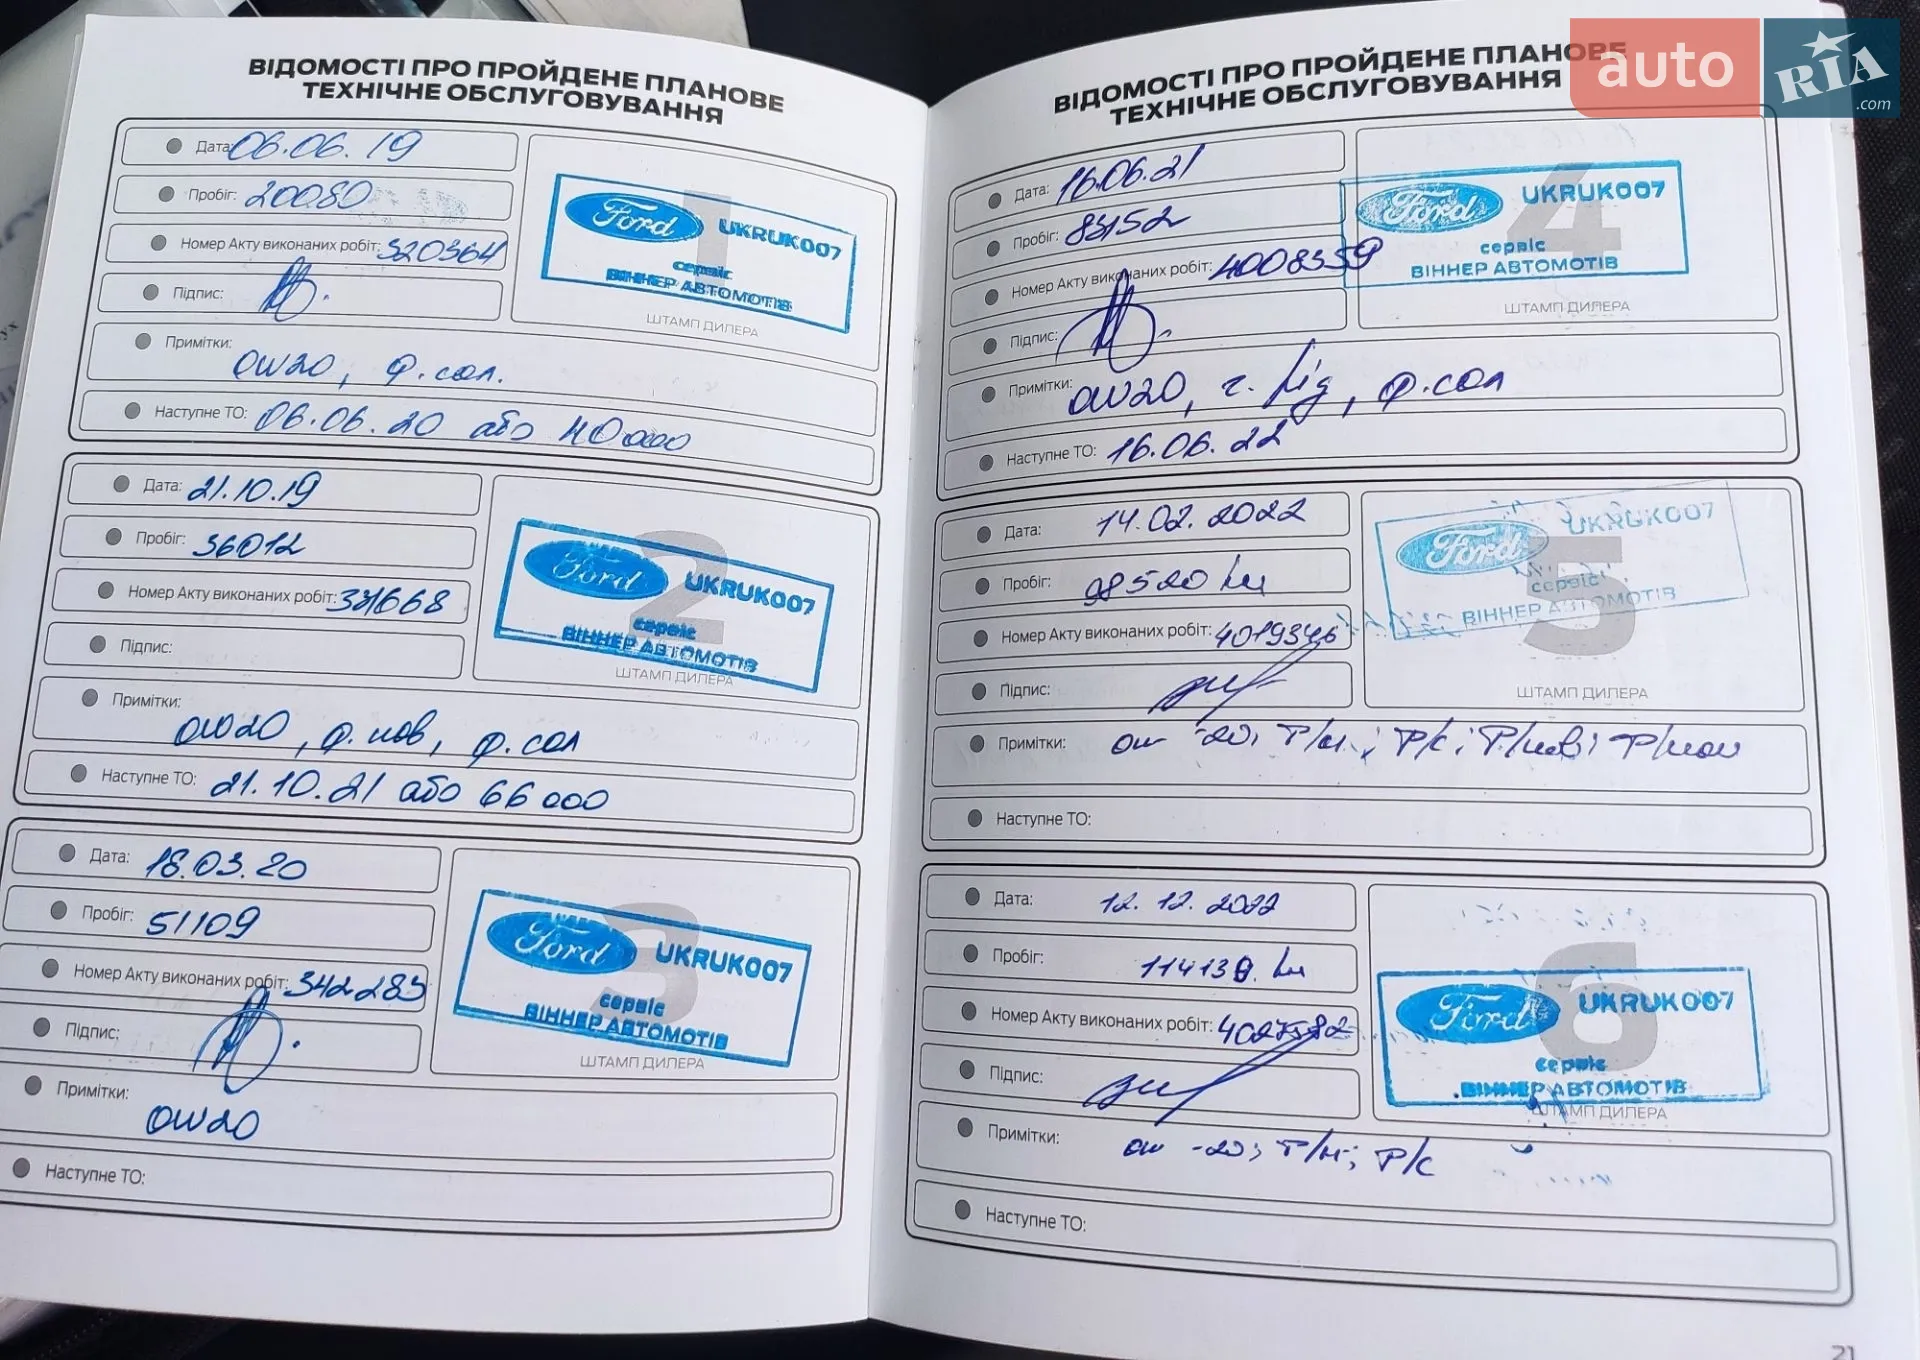 auto RIA .com
ВІДОМОСТІ ПРО ПРОЙДЕНЕ ПЛАНОВЕ
ТЕХНІЧНЕ ОБСЛУГОВУВАННЯ
Дата: 06.06.19
Пробіг: 20080
Номер Акту виконаних робіт: 320364
Підпис:
Примітки:
0W20, ф. сал.
Наступне ТО: 06.06.20 або 40000
1
Ford UKRUK007
сервіс
ВІННЕР АВТОМОТІВ
ШТАМП ДИЛЕРА
Дата: 21.10.19
Пробіг: 36012
Номер Акту виконаних робіт: 331668
Підпис:
Примітки:
0W20, ф. пов, ф. сал
Наступне ТО: 21.10.21 або 66000
2
Ford UKRUK007
сервіс
ВІННЕР АВТОМОТІВ
ШТАМП ДИЛЕРА
Дата: 18.03.20
Пробіг: 51109
Номер Акту виконаних робіт: 342283
Підпис:
Примітки:
0W20
Наступне ТО:
3
Ford UKRUK007
сервіс
ВІННЕР АВТОМОТІВ
ШТАМП ДИЛЕРА
ВІДОМОСТІ ПРО ПРОЙДЕНЕ ПЛАНОВЕ
ТЕХНІЧНЕ ОБСЛУГОВУВАННЯ
Дата: 16.06.21
Пробіг: 83152
Номер Акту виконаних робіт: 4008359
Підпис:
Примітки: 0W20, г. рід, ф. сал
Наступне ТО: 16.06.22
4
Ford UKRUK007
сервіс
ВІННЕР АВТОМОТІВ
ШТАМП ДИЛЕРА
Дата: 14.02.2022
Пробіг: 98520 км
Номер Акту виконаних робіт: 4019346
Підпис:
Примітки: 0W-20; Ф/м.; Ф/с; Ф/пов; Ф/пал
Наступне ТО:
5
Ford UKRUK007
сервіс
ВІННЕР АВТОМОТІВ
ШТАМП ДИЛЕРА
Дата: 12.12.2022
Пробіг: 114130. км
Номер Акту виконаних робіт: 4027582
Підпис:
Примітки: 0W-20; Ф/м; Ф/с
Наступне ТО:
6
Ford UKRUK007
сервіс
ВІННЕР АВТОМОТІВ
ШТАМП ДИЛЕРА
21